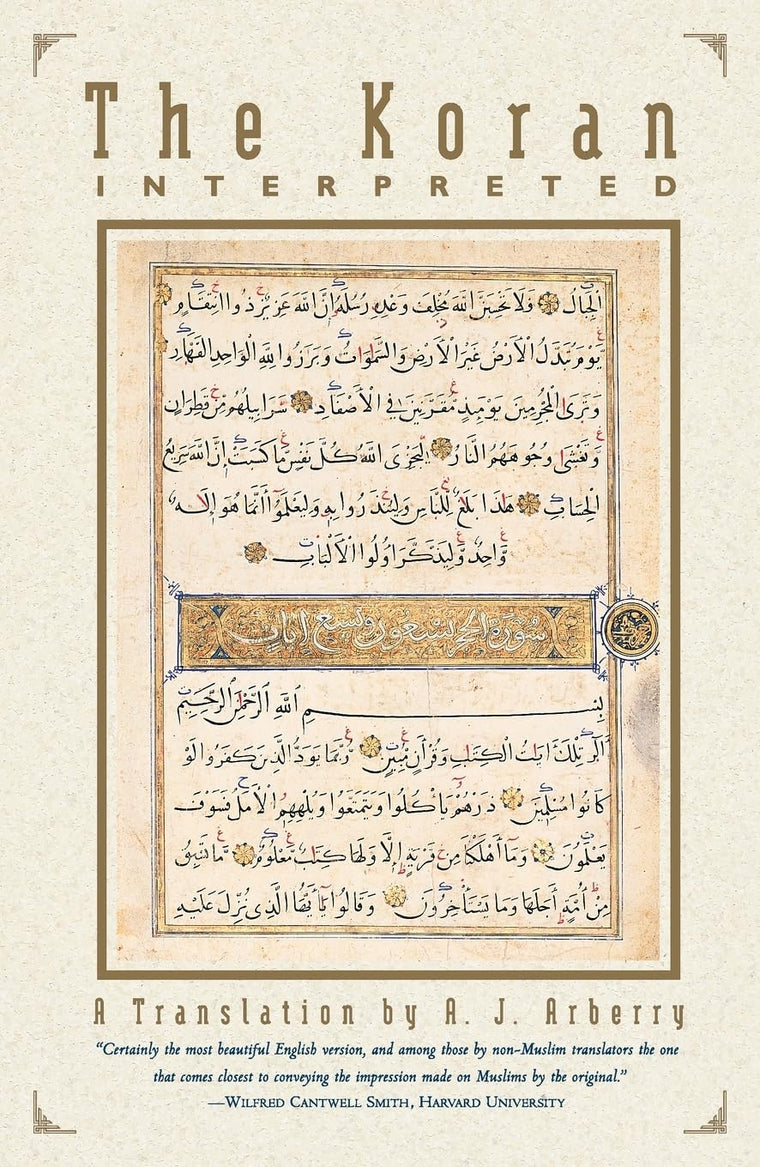 The Koran
INTERPRETED
الْجِبَالُ فَلَا تَحْسَبَنَّ اللَّهَ مُخْلِفَ وَعْدِهِ رُسُلَهُ إِنَّ اللَّهَ عَزِيزٌ ذُو انْتِقَامٍ
يَوْمَ تُبَدَّلُ الْأَرْضُ غَيْرَ الْأَرْضِ وَالسَّمٰوَاتُ وَبَرَزُوا لِلَّهِ الْوَاحِدِ الْقَهَّارِ
وَتَرَى الْمُجْرِمِينَ يَوْمَئِذٍ مُقَرَّنِينَ فِي الْأَصْفَادِ سَرَابِيلُهُمْ مِنْ قَطِرَانٍ
وَتَغْشَى وُجُوهَهُمُ النَّارُ لِيَجْزِيَ اللَّهُ كُلَّ نَفْسٍ مَا كَسَبَتْ إِنَّ اللَّهَ سَرِيعُ
الْحِسَابِ هٰذَا بَلَاغٌ لِلنَّاسِ وَلِيُنْذَرُوا بِهِ وَلِيَعْلَمُوا أَنَّمَا هُوَ إِلٰهٌ
وَاحِدٌ وَلِيَذَّكَّرَ أُولُوا الْأَلْبَابِ
سُورَةُ الْحِجْرِ تِسْعُونَ وَتِسْعُ آيَاتٍ
بِسْمِ اللَّهِ الرَّحْمٰنِ الرَّحِيمِ
الر تِلْكَ آيَاتُ الْكِتٰبِ وَقُرْآنٍ مُبِينٍ رُبَمَا يَوَدُّ الَّذِينَ كَفَرُوا لَوْ
كَانُوا مُسْلِمِينَ ذَرْهُمْ يَأْكُلُوا وَيَتَمَتَّعُوا وَيُلْهِهِمُ الْأَمَلُ فَسَوْفَ
يَعْلَمُونَ وَمَا أَهْلَكْنَا مِنْ قَرْيَةٍ إِلَّا وَلَهَا كِتَابٌ مَعْلُومٌ مَا تَسْبِقُ
مِنْ أُمَّةٍ أَجَلَهَا وَمَا يَسْتَأْخِرُونَ وَقَالُوا يَا أَيُّهَا الَّذِي نُزِّلَ عَلَيْهِ
A Translation by A. J. Arberry
“Certainly the most beautiful English version, and among those by non-Muslim translators the one
that comes closest to conveying the impression made on Muslims by the original.”
—WILFRED CANTWELL SMITH, HARVARD UNIVERSITY